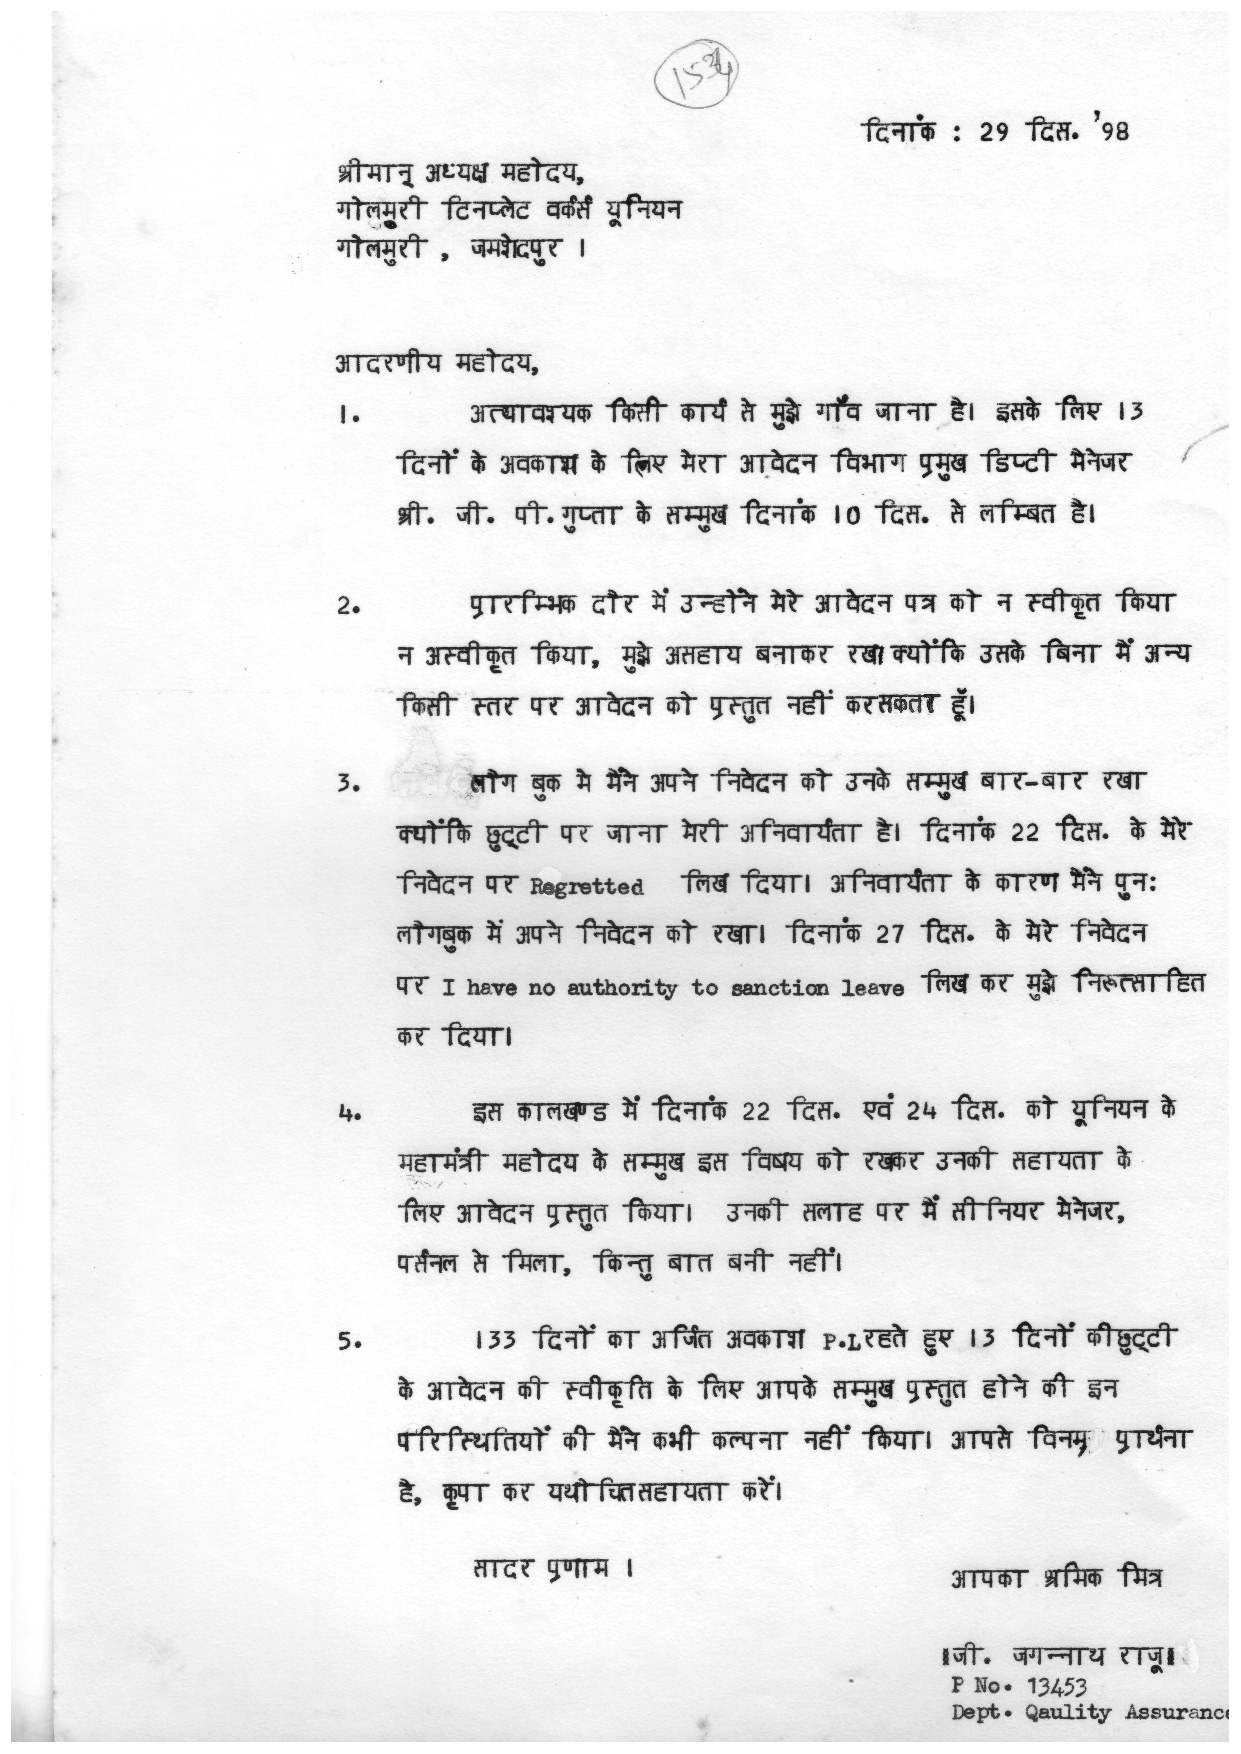 1534
दिनांक : 29 दिस. '98
श्रीमान् अध्यक्ष महोदय,
गोलमुरी टिनप्लेट वर्कर्स यूनियन
गोलमुरी , जमशेदपुर ।
आदरणीय महोदय,
1. अत्यावश्यक किसी कार्य से मुझे गाँव जाना है। इसके लिए 13
दिनों के अवकाश के लिए मेरा आवेदन विभाग प्रमुख डिप्टी मैनेजर
श्री. जी. पी. गुप्ता के सम्मुख दिनांक 10 दिस. से लम्बित है।
2. प्रारम्भिक दौर में उन्होंने मेरे आवेदन पत्र को न स्वीकृत किया
न अस्वीकृत किया, मुझे असहाय बनाकर रखा क्योंकि उसके बिना मैं अन्य
किसी स्तर पर आवेदन को प्रस्तुत नहीं कर सकता हूँ।
3. लौग बुक मे मैंने अपने निवेदन को उनके सम्मुख बार-बार रखा
क्योंकि छुट्टी पर जाना मेरी अनिवार्यता है। दिनांक 22 दिस. के मेरे
निवेदन पर Regretted लिख दिया। अनिवार्यता के कारण मैंने पुनः
लौगबुक में अपने निवेदन को रखा। दिनांक 27 दिस. के मेरे निवेदन
पर I have no authority to sanction leave लिख कर मुझे निरूत्साहित
कर दिया।
4. इस कालखण्ड में दिनांक 22 दिस. एवं 24 दिस. को यूनियन के
महामंत्री महोदय के सम्मुख इस विषय को रखकर उनकी सहायता के
लिए आवेदन प्रस्तुत किया। उनकी सलाह पर मैं सीनियर मैनेजर,
पर्सनल से मिला, किन्तु बात बनी नहीं।
5. 133 दिनों का अर्जित अवकाश P.L रहते हुए 13 दिनों की छुट्टी
के आवेदन की स्वीकृति के लिए आपके सम्मुख प्रस्तुत होने की इन
परिस्थितियों की मैंने कभी कल्पना नहीं किया। आपसे विनम्र प्रार्थना
है, कृपा कर यथोचित सहायता करें।
सादर प्रणाम ।
आपका श्रमिक मित्र
।जी. जगन्नाथ राजू।
P No. 13453
Dept. Qaulity Assurance